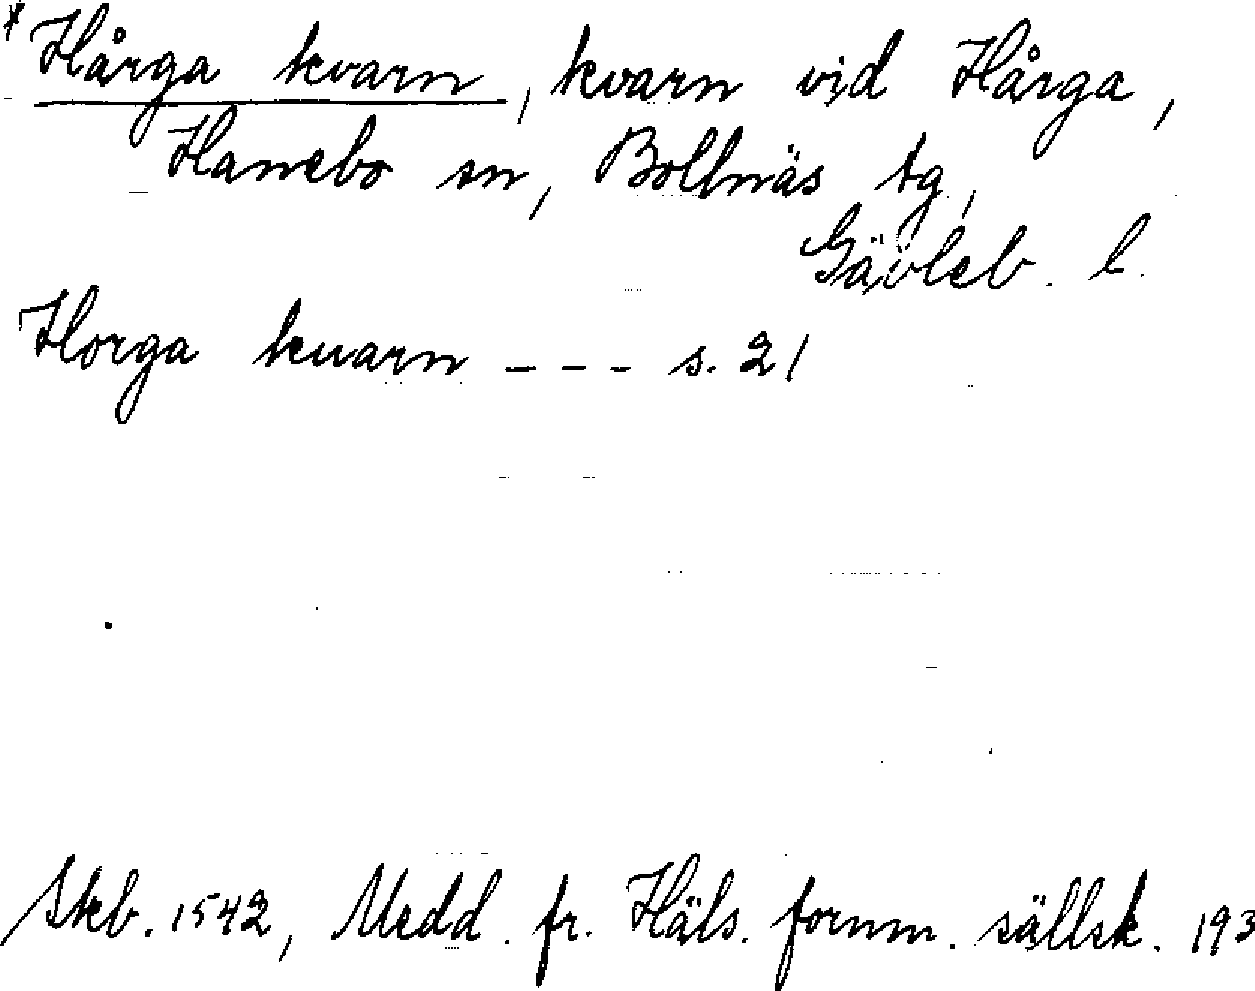 * Hårga kvarn, kvarn vid Hårga,
Hanebo sn, Bollnäs tg,
Gävleb. l.
Horga kuarn - - - s. 21
Skb. 1542, Medd. fr. Häls. fornm. sällsk. 193